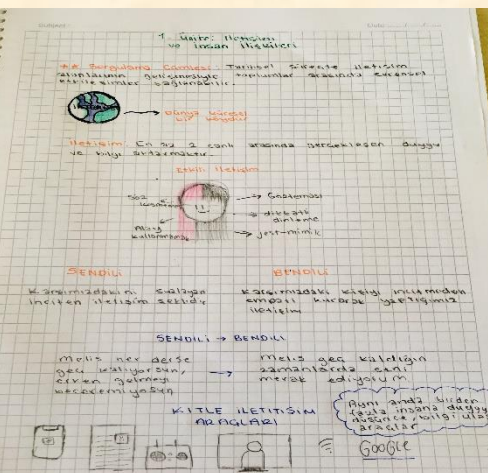 1. Ünite: İletişim
ve İnsan İlişkileri
** Sorgulama Cümlesi: Tarihsel süreçte iletişim
alanlarının gelişmesiyle toplumlar arasında evrensel
etkileşimler sağlanabilir.
Dünya küresel
bir köydür
İletişim: En az 2 canlı arasında gerçekleşen duygu
ve bilgi aktarmaktır.
Etkili İletişim
Söz
Göz teması
dikkatli
dinleme
kullanmama
jest-mimik
SENDİLİ
BENDİLİ
Karşımızdakini suçlayan
inciten iletişim şeklidir
Karşımızdaki kişiyi incitmeden
empati kurarak yaptığımız
iletişim
SENDİLİ → BENDİLİ
Melis her derse
geç kalıyorsun,
erken gelmeyi
beceremiyosun
→
Melis geç kaldığın
zamanlarda seni
merak ediyorum
KİTLE İLETİŞİM
ARAÇLARI
Aynı anda birden
fazla insana duygu
düşünce, bilgi
araçlar
GOOGLE